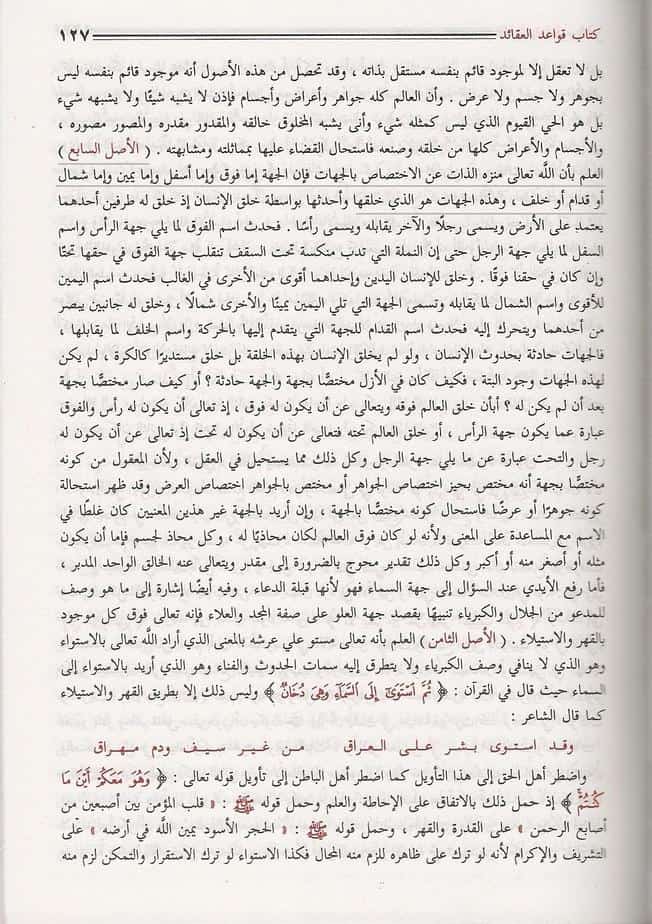 كتاب قواعد العقائد ١٢٧
بل لا تعقل إلا لموجود قائم بنفسه مستقل بذاته ، وقد تحصل من هذه الأصول أنه موجود قائم بنفسه ليس
بجوهر ولا جسم ولا عرض . وأن العالم كله جواهر وأعراض وأجسام فإذن لا يشبه شيئًا ولا يشبهه شيء
بل هو الحي القيوم الذي ليس كمثله شيء وأنى يشبه المخلوق خالقه والمقدور مقدره والمصور مصوره ،
والأجسام والأعراض كلها من خلقه وصنعه فاستحال القضاء عليها بمماثلته ومشابهته . ( الأصل السابع )
العلم بأن الله تعالى منزه الذات عن الاختصاص بالجهات فإن الجهة إما فوق وإما أسفل وإما يمين وإما شمال
أو قدام أو خلف ، وهذه الجهات هو الذي خلقها وأحدثها بواسطة خلق الإنسان إذ خلق له طرفين أحدهما
يعتمد على الأرض ويسمى رجلًا والآخر يقابله ويسمى رأسًا . فحدث اسم الفوق لما يلي جهة الرأس واسم
السفل لما يلي جهة الرجل حتى إن النملة التي تدب منكسة تحت السقف تنقلب جهة الفوق في حقها تحتًا
وإن كان في حقنا فوقًا . وخلق للإنسان اليدين وإحداهما أقوى من الأخرى في الغالب فحدث اسم اليمين
للأقوى واسم الشمال لما يقابله وتسمى الجهة التي تلي اليمين يمينًا والأخرى شمالًا ، وخلق له جانبين يبصر
من أحدهما ويتحرك إليه فحدث اسم القدام للجهة التي يتقدم إليها بالحركة واسم الخلف لما يقابلها ،
فالجهات حادثة بحدوث الإنسان ، ولو لم يخلق الإنسان بهذه الخلقة بل خلق مستديرًا كالكرة ، لم يكن
لهذه الجهات وجود البتة ، فكيف كان في الأزل مختصًّا بجهة والجهة حادثة ؟ أو كيف صار مختصًّا بجهة
بعد أن لم يكن له ؟ أبأن خلق العالم فوقه ويتعالى عن أن يكون له فوق ، إذ تعالى أن يكون له رأس والفوق
عبارة عما يكون جهة الرأس ، أو خلق العالم تحته فتعالى عن أن يكون له تحت إذ تعالى عن أن يكون له
رجل والتحت عبارة عن ما يلي جهة الرجل وكل ذلك مما يستحيل في العقل ، ولأن المعقول من كونه
مختصًّا بجهة أنه مختص بحيز اختصاص الجواهر أو مختص بالجواهر اختصاص العرض وقد ظهر استحالة
كونه جوهرًا أو عرضًا فاستحال كونه مختصًّا بالجهة ، وإن أريد بالجهة غير هذين المعنيين كان غلطًا في
الاسم مع المساعدة على المعنى ولأنه لو كان فوق العالم لكان محاذيًا له ، وكل محاذ لجسم فإما أن يكون
مثله أو أصغر منه أو أكبر وكل ذلك تقدير محوج بالضرورة إلى مقدر ويتعالى عنه الخالق الواحد المدبر ،
فأما رفع الأيدي عند السؤال إلى جهة السماء فهو لأنها قبلة الدعاء ، وفيه أيضًا إشارة إلى ما هو وصف
للمدعو من الجلال والكبرياء تنبيهًا بقصد جهة العلو على صفة المجد والعلاء فإنه تعالى فوق كل موجود
بالقهر والاستيلاء . ( الأصل الثامن ) العلم بأنه تعالى مستو علي عرشه بالمعنى الذي أراد الله تعالى بالاستواء
وهو الذي لا ينافي وصف الكبرياء ولا يتطرق إليه سمات الحدوث والفناء وهو الذي أريد بالاستواء إلى
السماء حيث قال في القرآن : ﴿ ثُمَّ ٱسْتَوَىٰٓ إِلَى ٱلسَّمَآءِ وَهِىَ دُخَانٌ ﴾ وليس ذلك إلا بطريق القهر والاستيلاء
كما قال الشاعر :
وقد استوى بشر على العراق من غير سيف ودم مهراق
واضطر أهل الحق إلى هذا التأويل كما اضطر أهل الباطن إلى تأويل قوله تعالى : ﴿ وَهُوَ مَعَكُمْ أَيْنَ مَا
كُنتُمْ ﴾ إذ حمل ذلك بالاتفاق على الإحاطة والعلم وحمل قوله ﷺ : « قلب المؤمن بين أصبعين من
أصابع الرحمن » على القدرة والقهر ، وحمل قوله ﷺ : « الحجر الأسود يمين الله في أرضه » على
التشريف والإكرام لأنه لو ترك على ظاهره للزم منه المحال فكذا الاستواء لو ترك الاستقرار والتمكن لزم منه